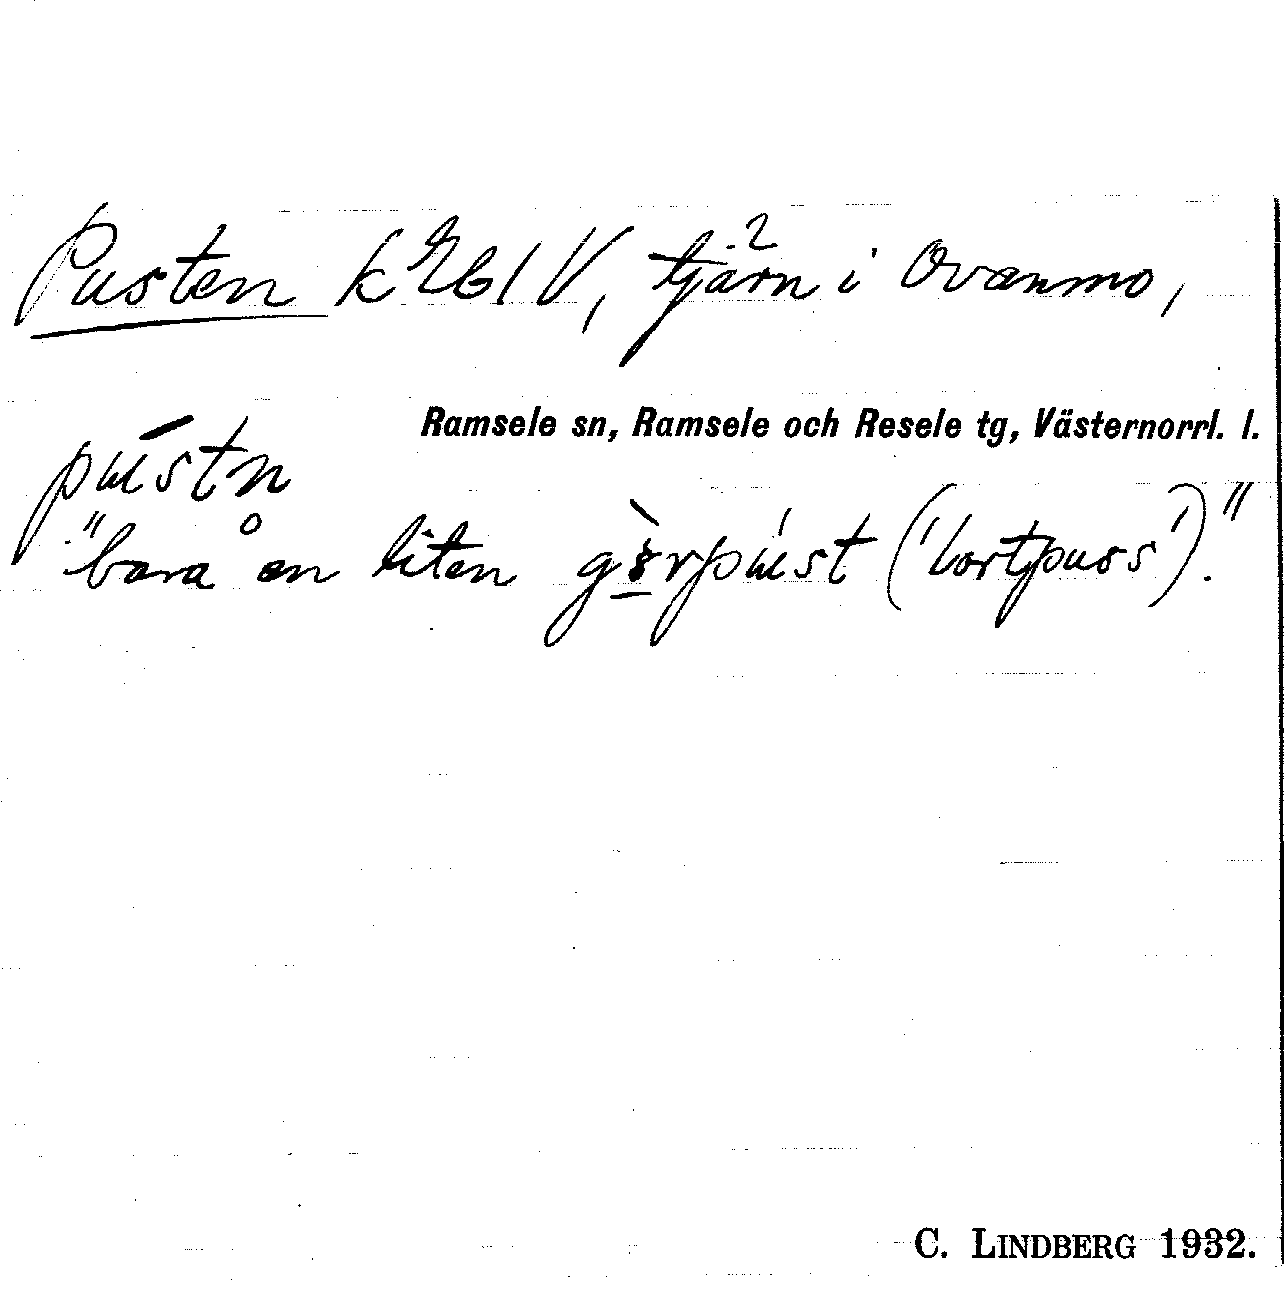 Pusten k 2 b1V, tjärn i Ovanmo,
Ramsele sn, Ramsele och Resele tg, Västernorrl. l.
pústn
"bara en liten görpúst ('lortpuss')."
C. LINDBERG 1932.